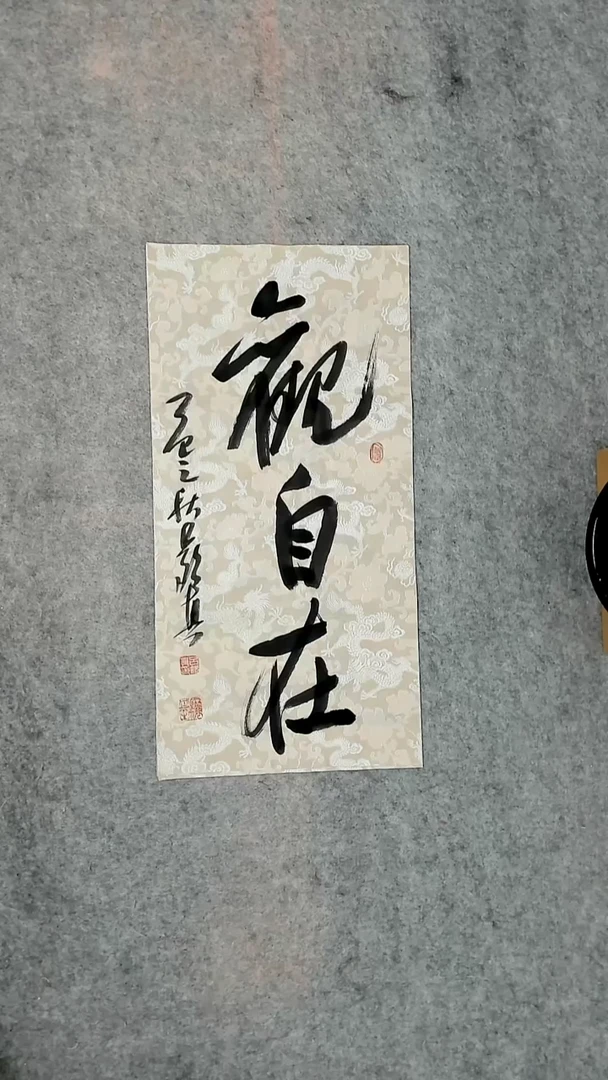 觀自在
乙巳之秋